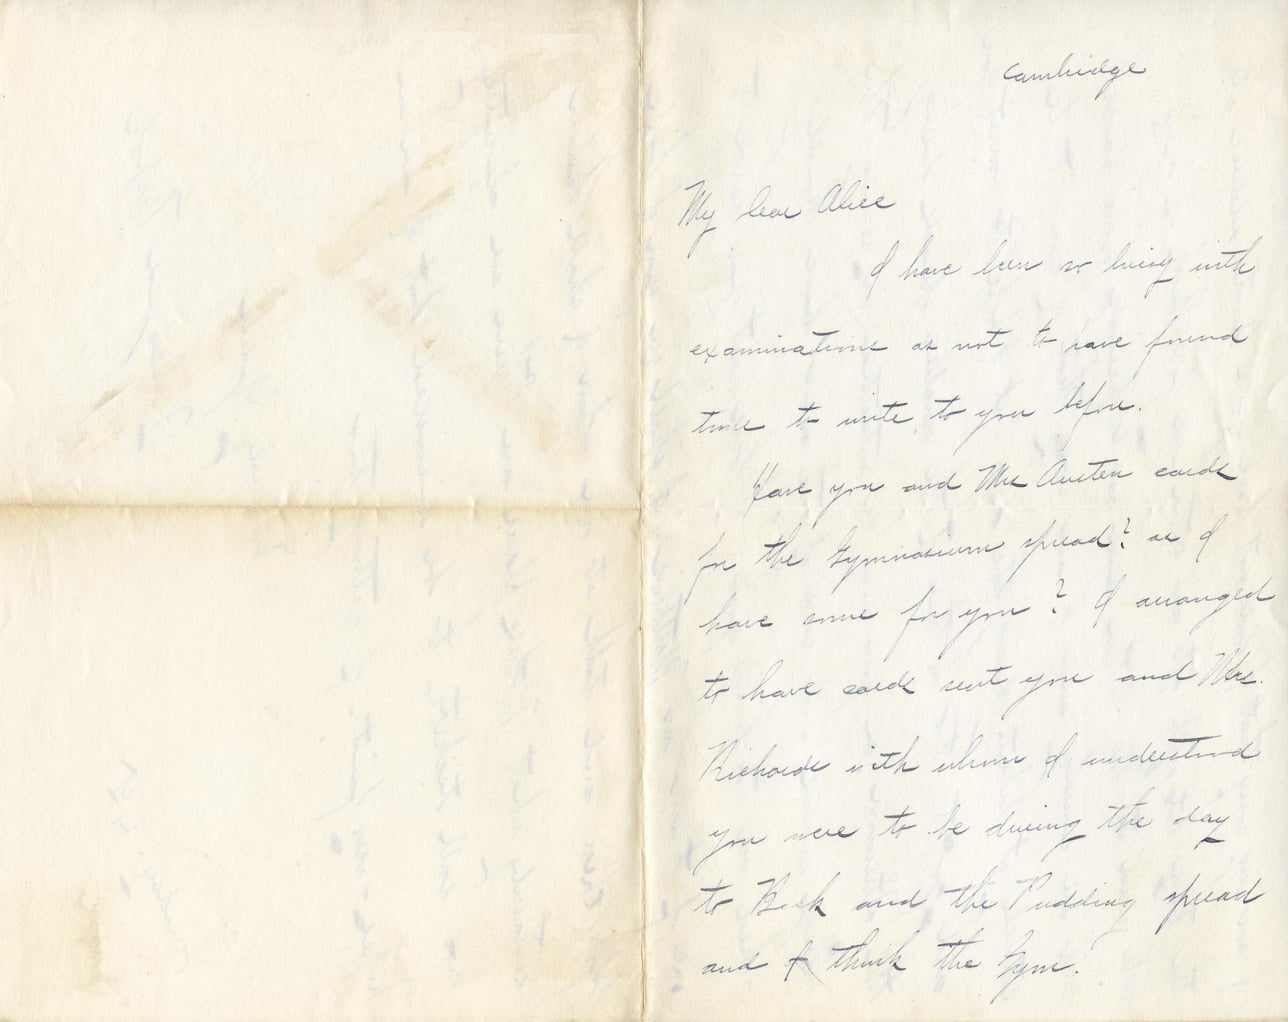 Cambridge
My dear Alice
I have been so busy with
examinations as not to have found
time to write to you before.
Have you and Mrs Austen cards
for the Gymnasium spread? or I
have some for you? I arranged
to have cards sent you and Mrs.
Richards with whom I understand
you were to be during the day
to Beck and the Pudding spread
and I think the Gym.